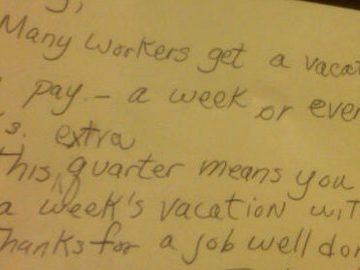 Many workers get a vacat
pay. – a week or ever
s. extra
This quarter means you
a week's vacation wit
Thanks for a job well don